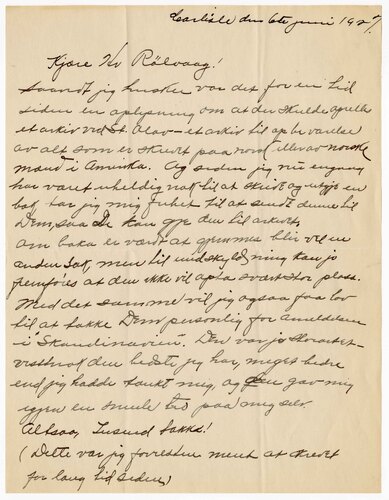 Carlisle den 6te juni 1927
Kjære Hr Rölvaag!
Saavidt jeg husker var det for en tid
siden en oplysning om at der skulde oprettes
et arkiv ved St. Olav — et arkiv til opbevarelse
av alt som er skrevet paa norsk eller av norske
mænd i Amerika. Og siden jeg nu engang
har været uheldig nok til at skrive og utgi en
bok, tar jeg mig frihet til at sende denne til
Dem, saa De kan gje den til arkivet.
Om boka er værdt at gjemmes blir vel en
anden sak, men til undskyldning kan jo
fremføres at den ikke vil opta svært stor plass.
Med det samme vil jeg ogsaa faa lov
til at takke Dem personlig for anmeldelsen
i "Skandinaven". Den var jo
visstnok den bedste jeg har, meget bedre
end jeg hadde tænkt mig, og den gav mig
igjen en smule tro paa mig selv.
Altsaa, Tusend takk!
(Dette var jeg forresten ment at skrevet
for lang tid siden)